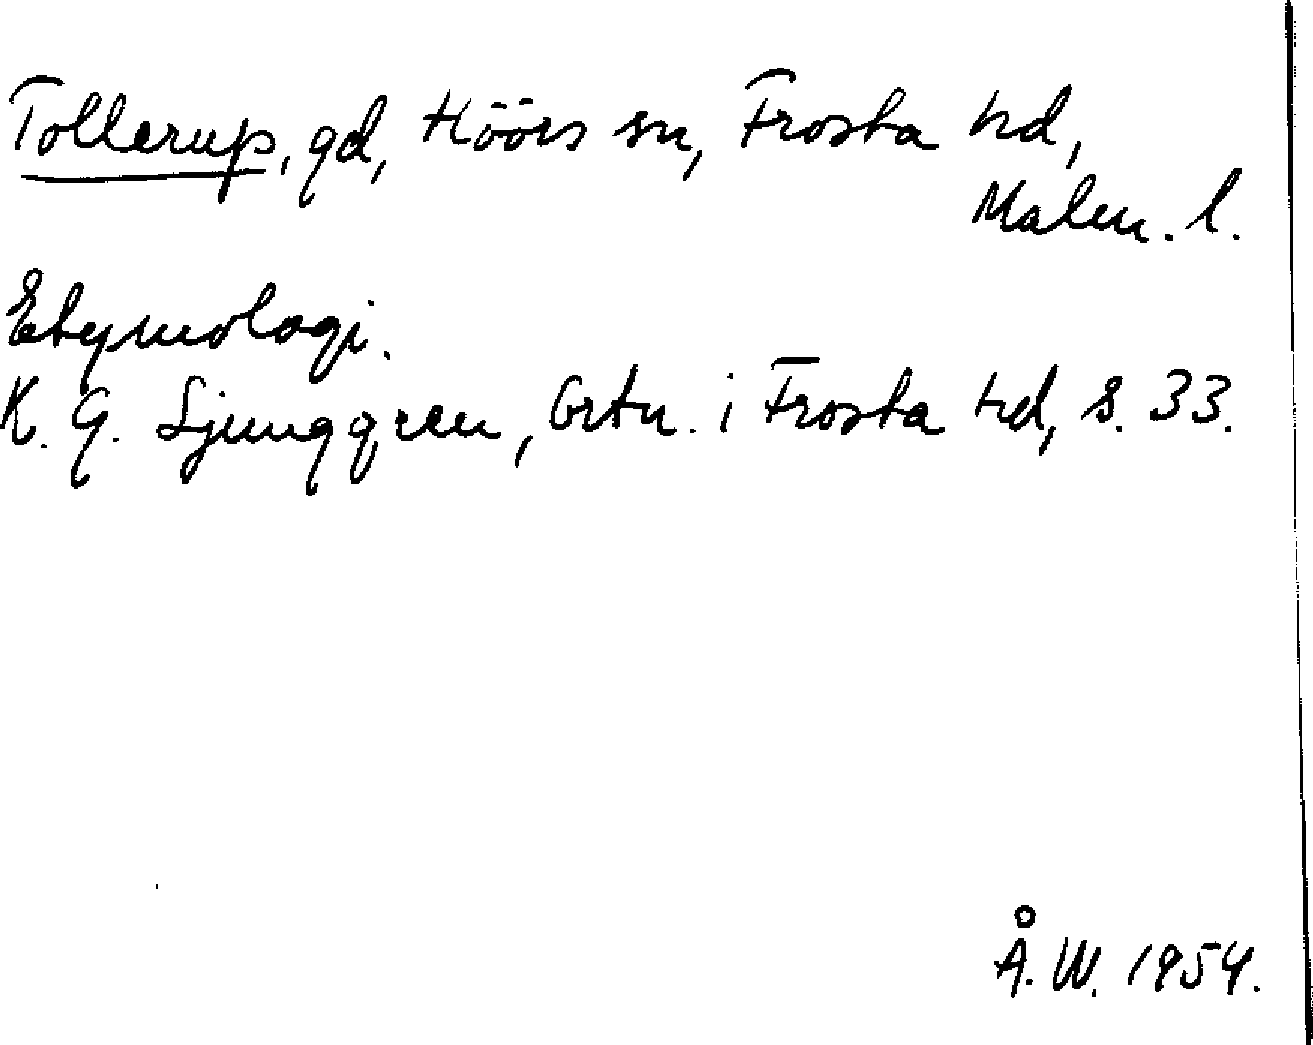 Tollerup, gd, Höörs sn, Frosta hd,
Malm. l.
Etymologi.
K. G. Ljunggren, Ortn. i Frosta hd, s. 33.
Å. W. 1954.